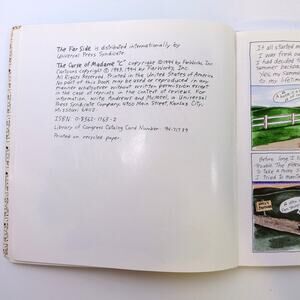 The Far Side is distributed internationally by
Universal Press Syndicate.
The Curse of Madame "C" copyright © 1994 by FarWorks, Inc.
Cartoons copyright © 1993, 1994 by FarWorks, Inc.
All Rights Reserved. Printed in the United States of America.
No part of this book may be used or reproduced in any
manner whatsoever without written permission except
in the case of reprints in the context of reviews. For
information, write Andrews and McMeel, a Universal
Press Syndicate Company, 4900 Main Street, Kansas City,
Missouri 64112.
ISBN: 0-8362-1763-2
Library of Congress Catalog Card Number:
Printed on recycled paper.
It all started
I was fresh out
I had decided
Summer
Yes, my Summer
to my
Before long I
trouble. The
to take a
I tried to